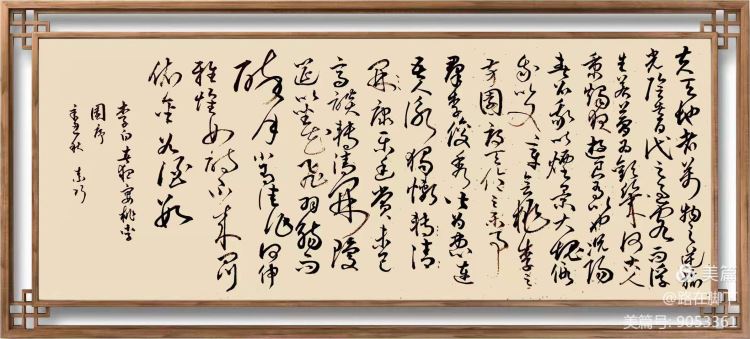 夫天地者萬物之逆旅
光陰者百代之過客而浮
生若夢為歡幾何古人
秉燭夜遊良有以也況陽
春召我以煙景大塊假
我以文章會桃李之
芳園序天倫之樂事
群季俊秀皆為惠連
吾人詠獨慚轉清
康樂幽賞未已
高談轉清開瓊
筵以坐花飛羽觴而
醉月不有佳作何伸
雅懷如詩不成罰
依金谷酒數
李白春夜宴桃李
園序
秋
美篇
@路在脚下
美篇号: 9053361